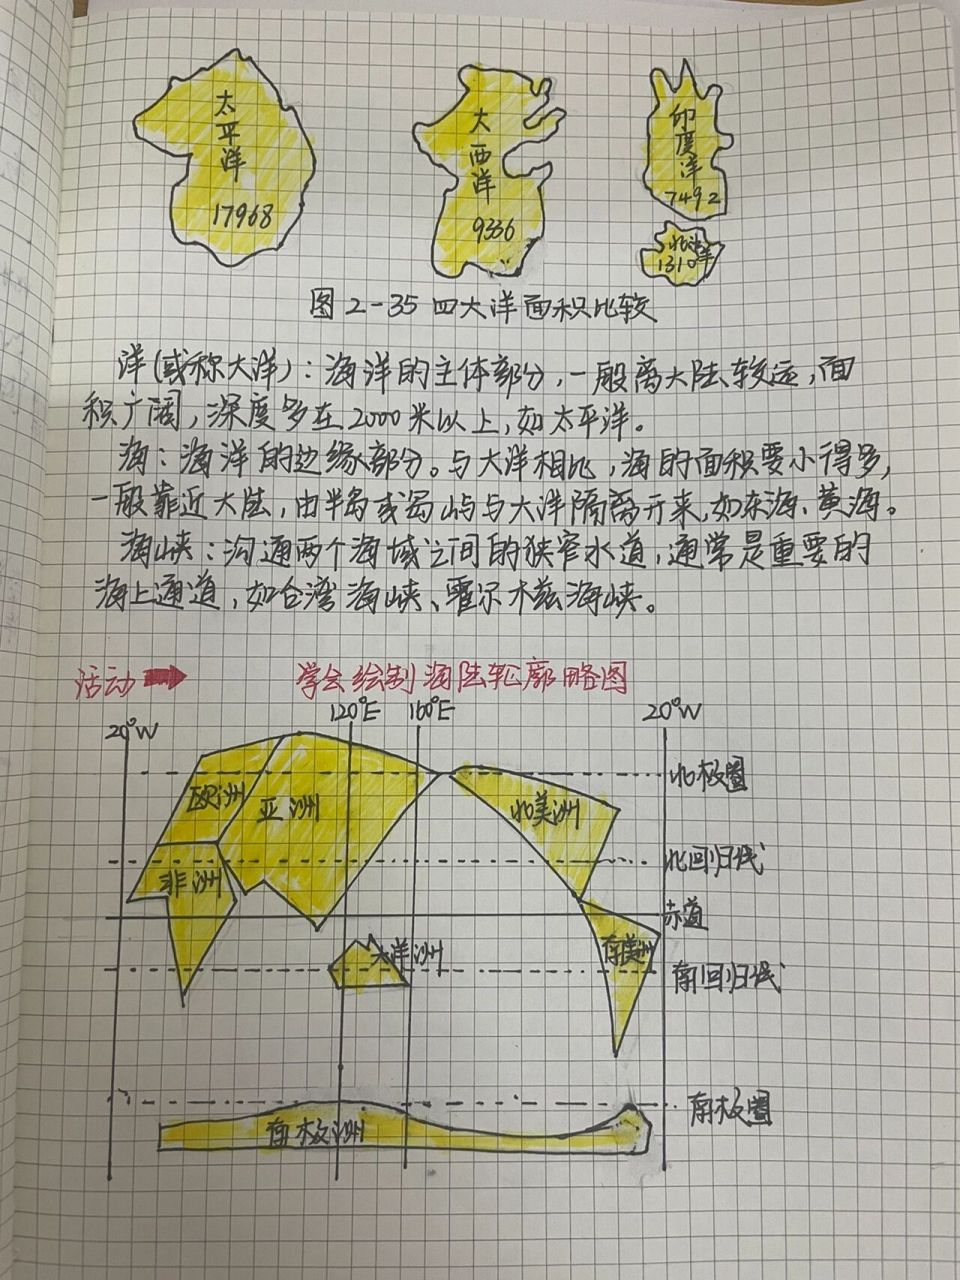 太平洋
17968
大西洋
9336
印度洋
7492
北冰洋
1310
图2-35 四大洋面积比较
洋(或称大洋):海洋的主体部分,一般离大陆较远,面
积广阔,深度多在2000米以上,如太平洋。
海:海洋的边缘部分。与大洋相比,海的面积要小得多,
一般靠近大陆,由半岛或岛屿与大洋隔离开来,如东海、黄海。
海峡:沟通两个海域之间的狭窄水道,通常是重要的
海上通道,如台湾海峡、霍尔木兹海峡。
活动 学会绘制海陆轮廓略图
20°W 120°E 160°E 20°W
北极圈
欧洲 亚洲 北美洲
北回归线
非洲
赤道
大洋洲 南美洲
南回归线
南极圈
南极洲